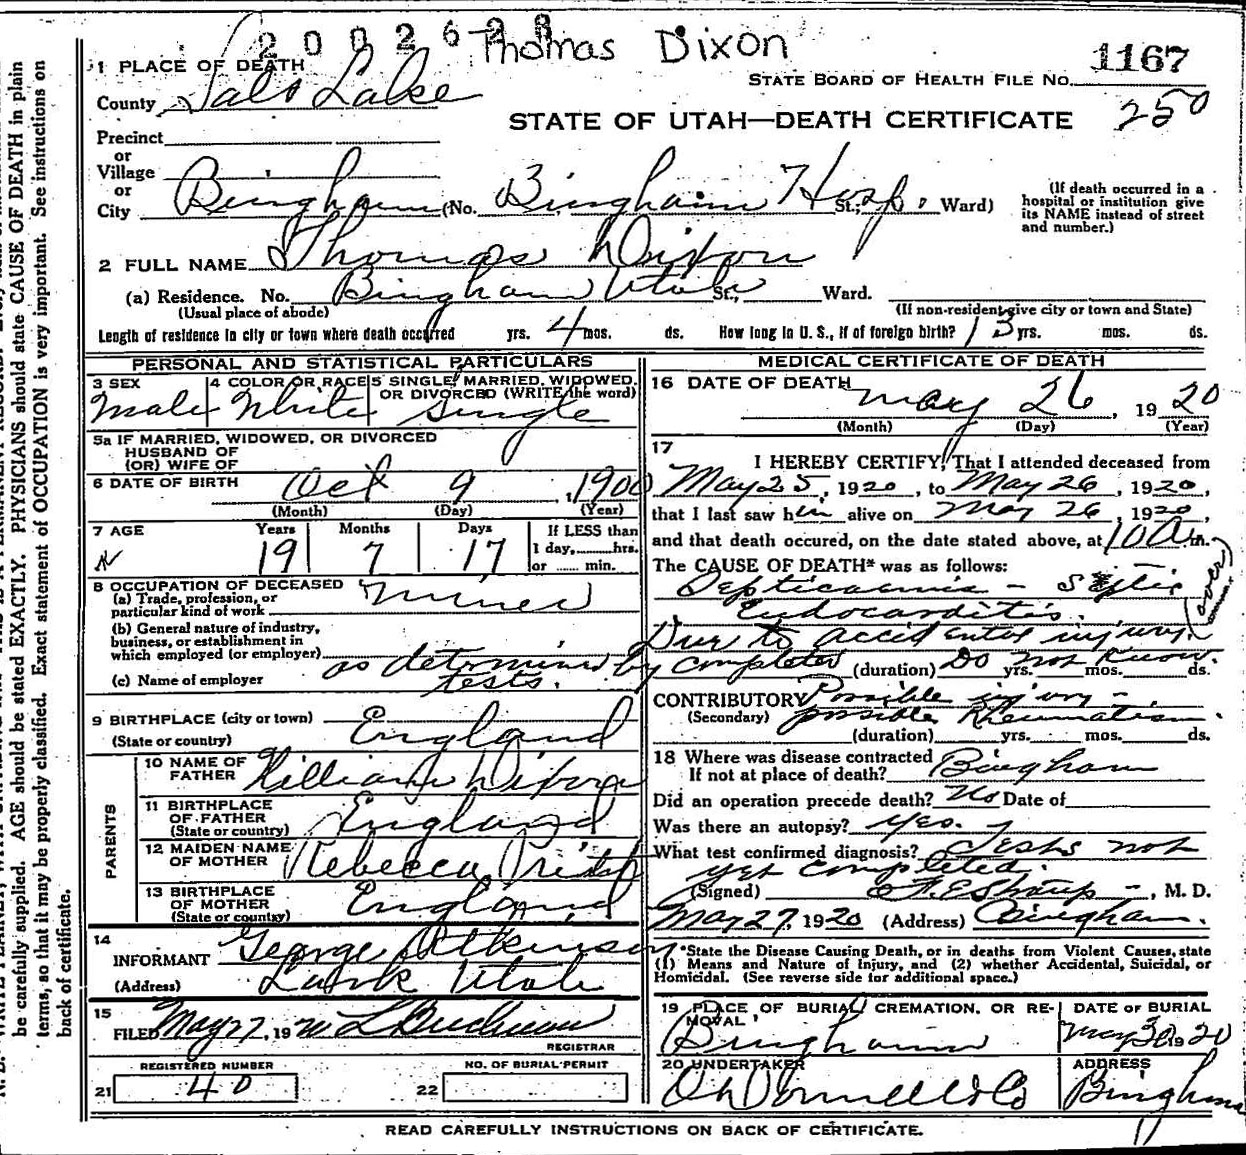 2002628 Thomas Dixon
1167
STATE BOARD OF HEALTH FILE NO.
250
1 PLACE OF DEATH
County Salt Lake
STATE OF UTAH—DEATH CERTIFICATE
Precinct
or
Village
or
City Bingham (No. Bingham Hosp. St.; Ward)
(If death occurred in a hospital or institution give its NAME instead of street and number.)
2 FULL NAME Thomas Dixon
(a) Residence. No. Bingham Utah St., Ward.
(Usual place of abode)
(If non-resident give city or town and State)
Length of residence in city or town where death occurred yrs. 4 mos. ds. How long in U. S., if of foreign birth? 13 yrs. mos. ds.
PERSONAL AND STATISTICAL PARTICULARS
3 SEX Male
4 COLOR OR RACE White
5 SINGLE, MARRIED, WIDOWED, OR DIVORCED (WRITE the word) Single
5a IF MARRIED, WIDOWED, OR DIVORCED
HUSBAND OF
(OR) WIFE OF
6 DATE OF BIRTH Oct 9, 1900
(Month) (Day) (Year)
7 AGE Years Months Days If LESS than
19 7 17 1 day, hrs.
or min.
8 OCCUPATION OF DECEASED
(a) Trade, profession, or particular kind of work Miner
(b) General nature of industry, business, or establishment in which employed (or employer)
(c) Name of employer
9 BIRTHPLACE (city or town)
(State or country) England
PARENTS
10 NAME OF FATHER William Dixon
11 BIRTHPLACE OF FATHER
(State or country) England
12 MAIDEN NAME OF MOTHER Rebecca
13 BIRTHPLACE OF MOTHER
(State or country) England
14
INFORMANT George Atkinson
(Address) Lark Utah
15
FILED May 27, 1920
REGISTRAR
REGISTERED NUMBER
21 40
NO. OF BURIAL PERMIT
22
MEDICAL CERTIFICATE OF DEATH
16 DATE OF DEATH May 26, 1920
(Month) (Day) (Year)
17
I HEREBY CERTIFY, That I attended deceased from
May 25, 1920, to May 26, 1920,
that I last saw him alive on May 26, 1920,
and that death occured, on the date stated above, at 10 A m.
The CAUSE OF DEATH* was as follows:
Septicaemia - Septic
Endocarditis. (over)
Due to accidental injury.
as determined by completed tests.
(duration) Do not know. yrs. mos. ds.
CONTRIBUTORY Possible injury -
(Secondary) possible Rheumatism.
(duration) yrs. mos. ds.
18 Where was disease contracted
If not at place of death? Bingham
Did an operation precede death? No Date of
Was there an autopsy? yes.
What test confirmed diagnosis? Tests not
yet completed.
(Signed) , M. D.
May 27, 1920 (Address) Bingham.
*State the Disease Causing Death, or in deaths from Violent Causes, state
(1) Means and Nature of Injury, and (2) whether Accidental, Suicidal, or
Homicidal. (See reverse side for additional space.)
19 PLACE OF BURIAL, CREMATION, OR REMOVAL
Bingham
DATE OF BURIAL
May 30 1920
20 UNDERTAKER
O'Donnell & Co
ADDRESS
Bingham
READ CAREFULLY INSTRUCTIONS ON BACK OF CERTIFICATE.
be carefully supplied. AGE should be stated EXACTLY. PHYSICIANS should state CAUSE OF DEATH in plain
terms, so that it may be properly classified. Exact statement of OCCUPATION is very important. See instructions on
back of certificate.